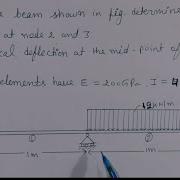 e beam shown in fig. determine
at node 2 and 3.
cal deflection at the mid-point of
elements have E = 200GPa I = 4
12 kN/m
① ②
1m 1m